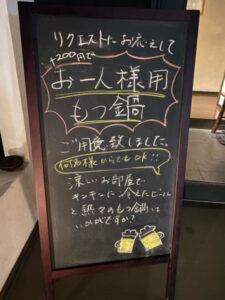 リクエストにお応えして
+200円で
お一人様用
もつ鍋
ご用意致しました。
何名様からでもOK!!
涼しいお部屋で
キンキンに冷えたビール
と熱々のもつ鍋って
いかがですか?